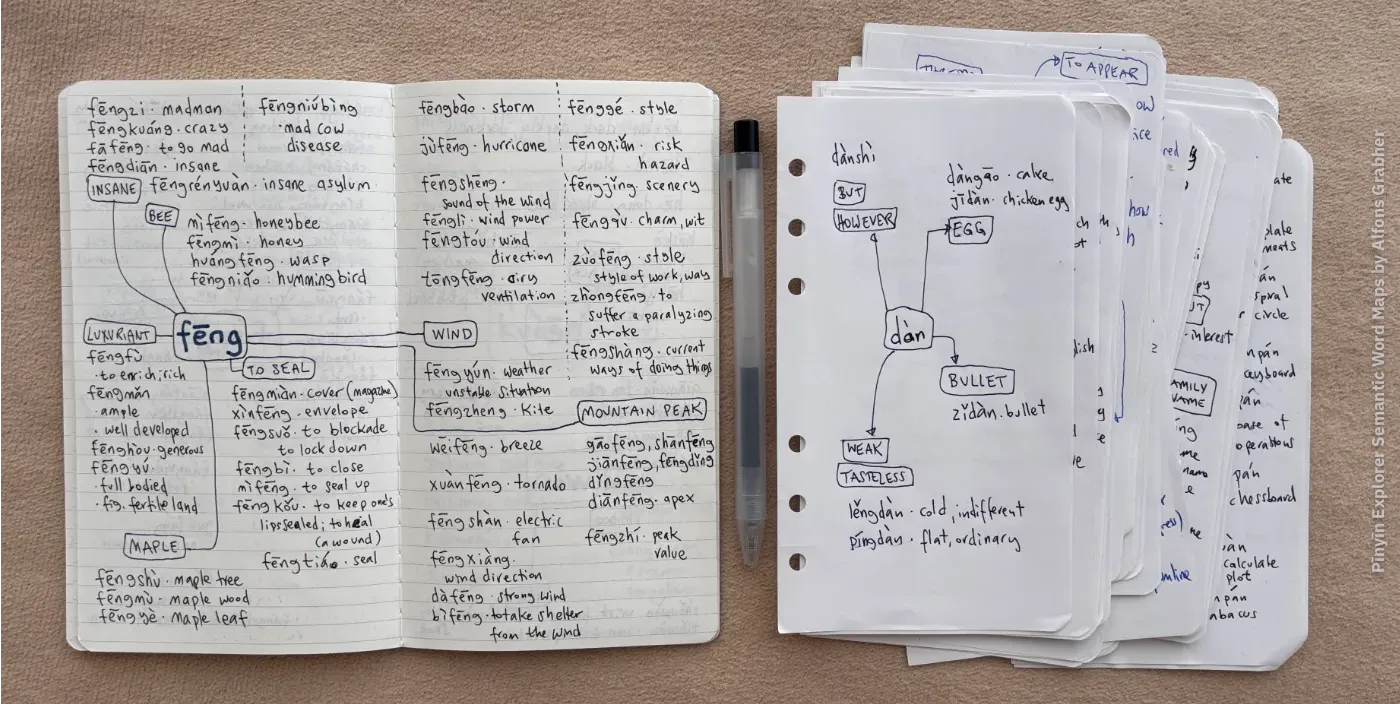 fēngzi · madman
fēngkuáng · crazy
fāfēng · to go mad
fēngdiān · insane
INSANE
fēngrényuàn · insane asylum
fēngniúbìng
· mad cow
disease
BEE
mìfēng · honeybee
fēngmì · honey
huángfēng · wasp
fēngniǎo · hummingbird
LUXURIANT
fēng
fēngfù
· to enrich; rich
fēngmǎn
· ample
· well developed
fēnghòu · generous
fēngyú ·
· full bodied
· fig. fertile land
TO SEAL
fēngmiàn · cover (magazine)
xìnfēng · envelope
fēngsuǒ · to blockade
to lock down
fēngbì · to close
mìfēng · to seal up
fēngkǒu · to keep one's
lips sealed; to heal
(a wound)
fēngtiáo · seal
MAPLE
fēngshù · maple tree
fēngmù · maple wood
fēngyè · maple leaf
fēngbào · storm
jùfēng · hurricane
fēngshēng ·
sound of the wind
fēnglì · wind power
fēngtóu · wind
direction
tōngfēng · airy
ventilation
WIND
fēngyún · weather
unstable situation
fēngzheng · kite
wēifēng · breeze
xuànfēng · tornado
fēngshàn · electric
fan
fēngxiàng ·
wind direction
dàfēng · strong wind
bìfēng · to take shelter
from the wind
fēnggé · style
fēngxiǎn · risk
hazard
fēngjǐng · scenery
fēngqù · charm, wit
zuòfēng · style
style of work, way
zhòngfēng · to
suffer a paralyzing
stroke
fēngshàng · current
ways of doing things
MOUNTAIN PEAK
gāofēng, shānfēng
jiānfēng, fēngdǐng
dǐngfēng
diānfēng · apex
fēngzhí · peak
value
dànshì
BUT
HOWEVER
dàngāo · cake
jīdàn · chicken egg
EGG
dàn
BULLET
zǐdàn · bullet
WEAK
TASTELESS
lěngdàn · cold, indifferent
píngdàn · flat, ordinary
TO APPEAR
how
interest
calculate
plot
abacus
chessboard
Pinyin Explorer Semantic Word Maps by Alfons Grabher